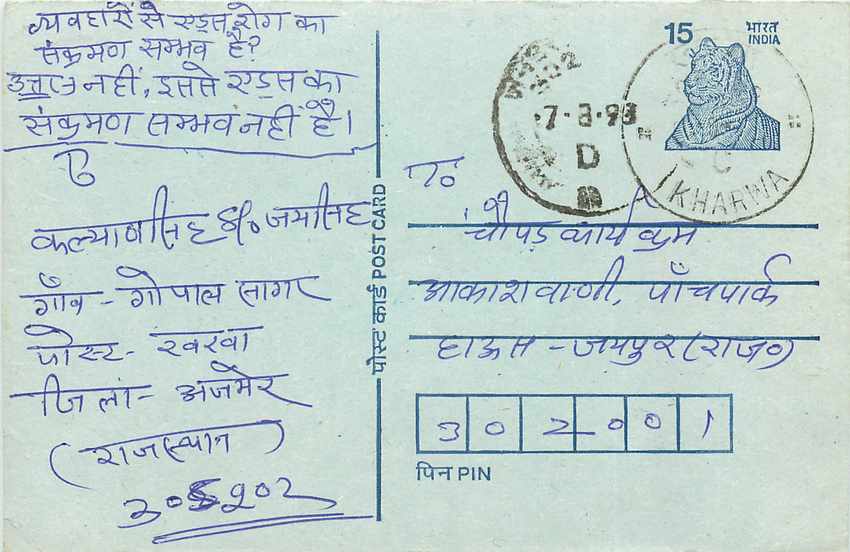 व्यवहारों से एड्स रोग का
संक्रमण सम्भव है?
उत्तर नहीं, इससे एड्स का
संक्रमण सम्भव नहीं है।
कल्याणसिंह S/o जयसिंह
गाँव - गोपाल सागर
पोस्ट - खरवा
जिला - अजमेर
(राजस्थान)
305202
पोस्ट कार्ड POST CARD
15 भारत
INDIA
7-8-93
D
KHARWA
To
चौपड़ कार्यक्रम
आकाशवाणी, पाँचपार्क
हाऊस - जयपुर (राज०)
302001
पिन PIN